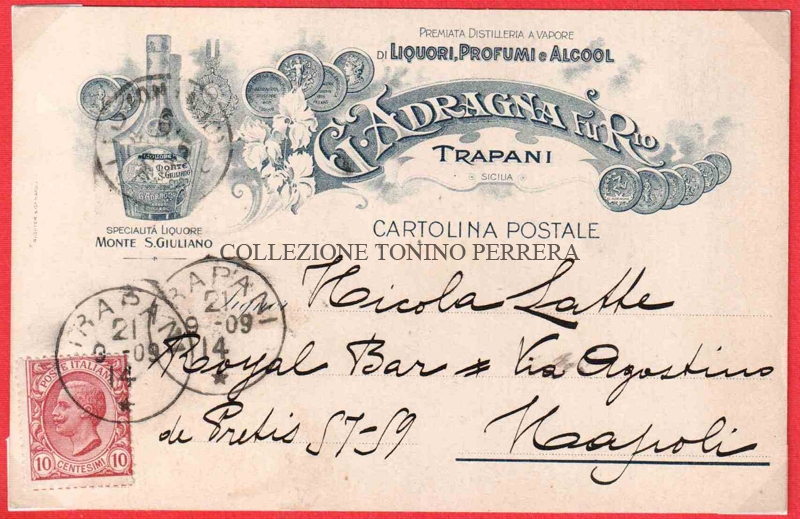 PREMIATA DISTILLERIA A VAPORE
DI LIQUORI, PROFUMI e ALCOOL
G. ADRAGNA FU RIO
TRAPANI
SICILIA
LIQUORE
MONTE
S. GIULIANO
SPECIALITÀ LIQUORE
MONTE S. GIULIANO
CARTOLINA POSTALE
COLLEZIONE TONINO PERRERA
TRAPANI
21
9-09
14
TRAPANI
21
9-09
14
Nicola Latte
Royal Bar Via Agostino
de Pretis 57-59
Napoli
POSTE ITALIANE
10 CENTESIMI 10